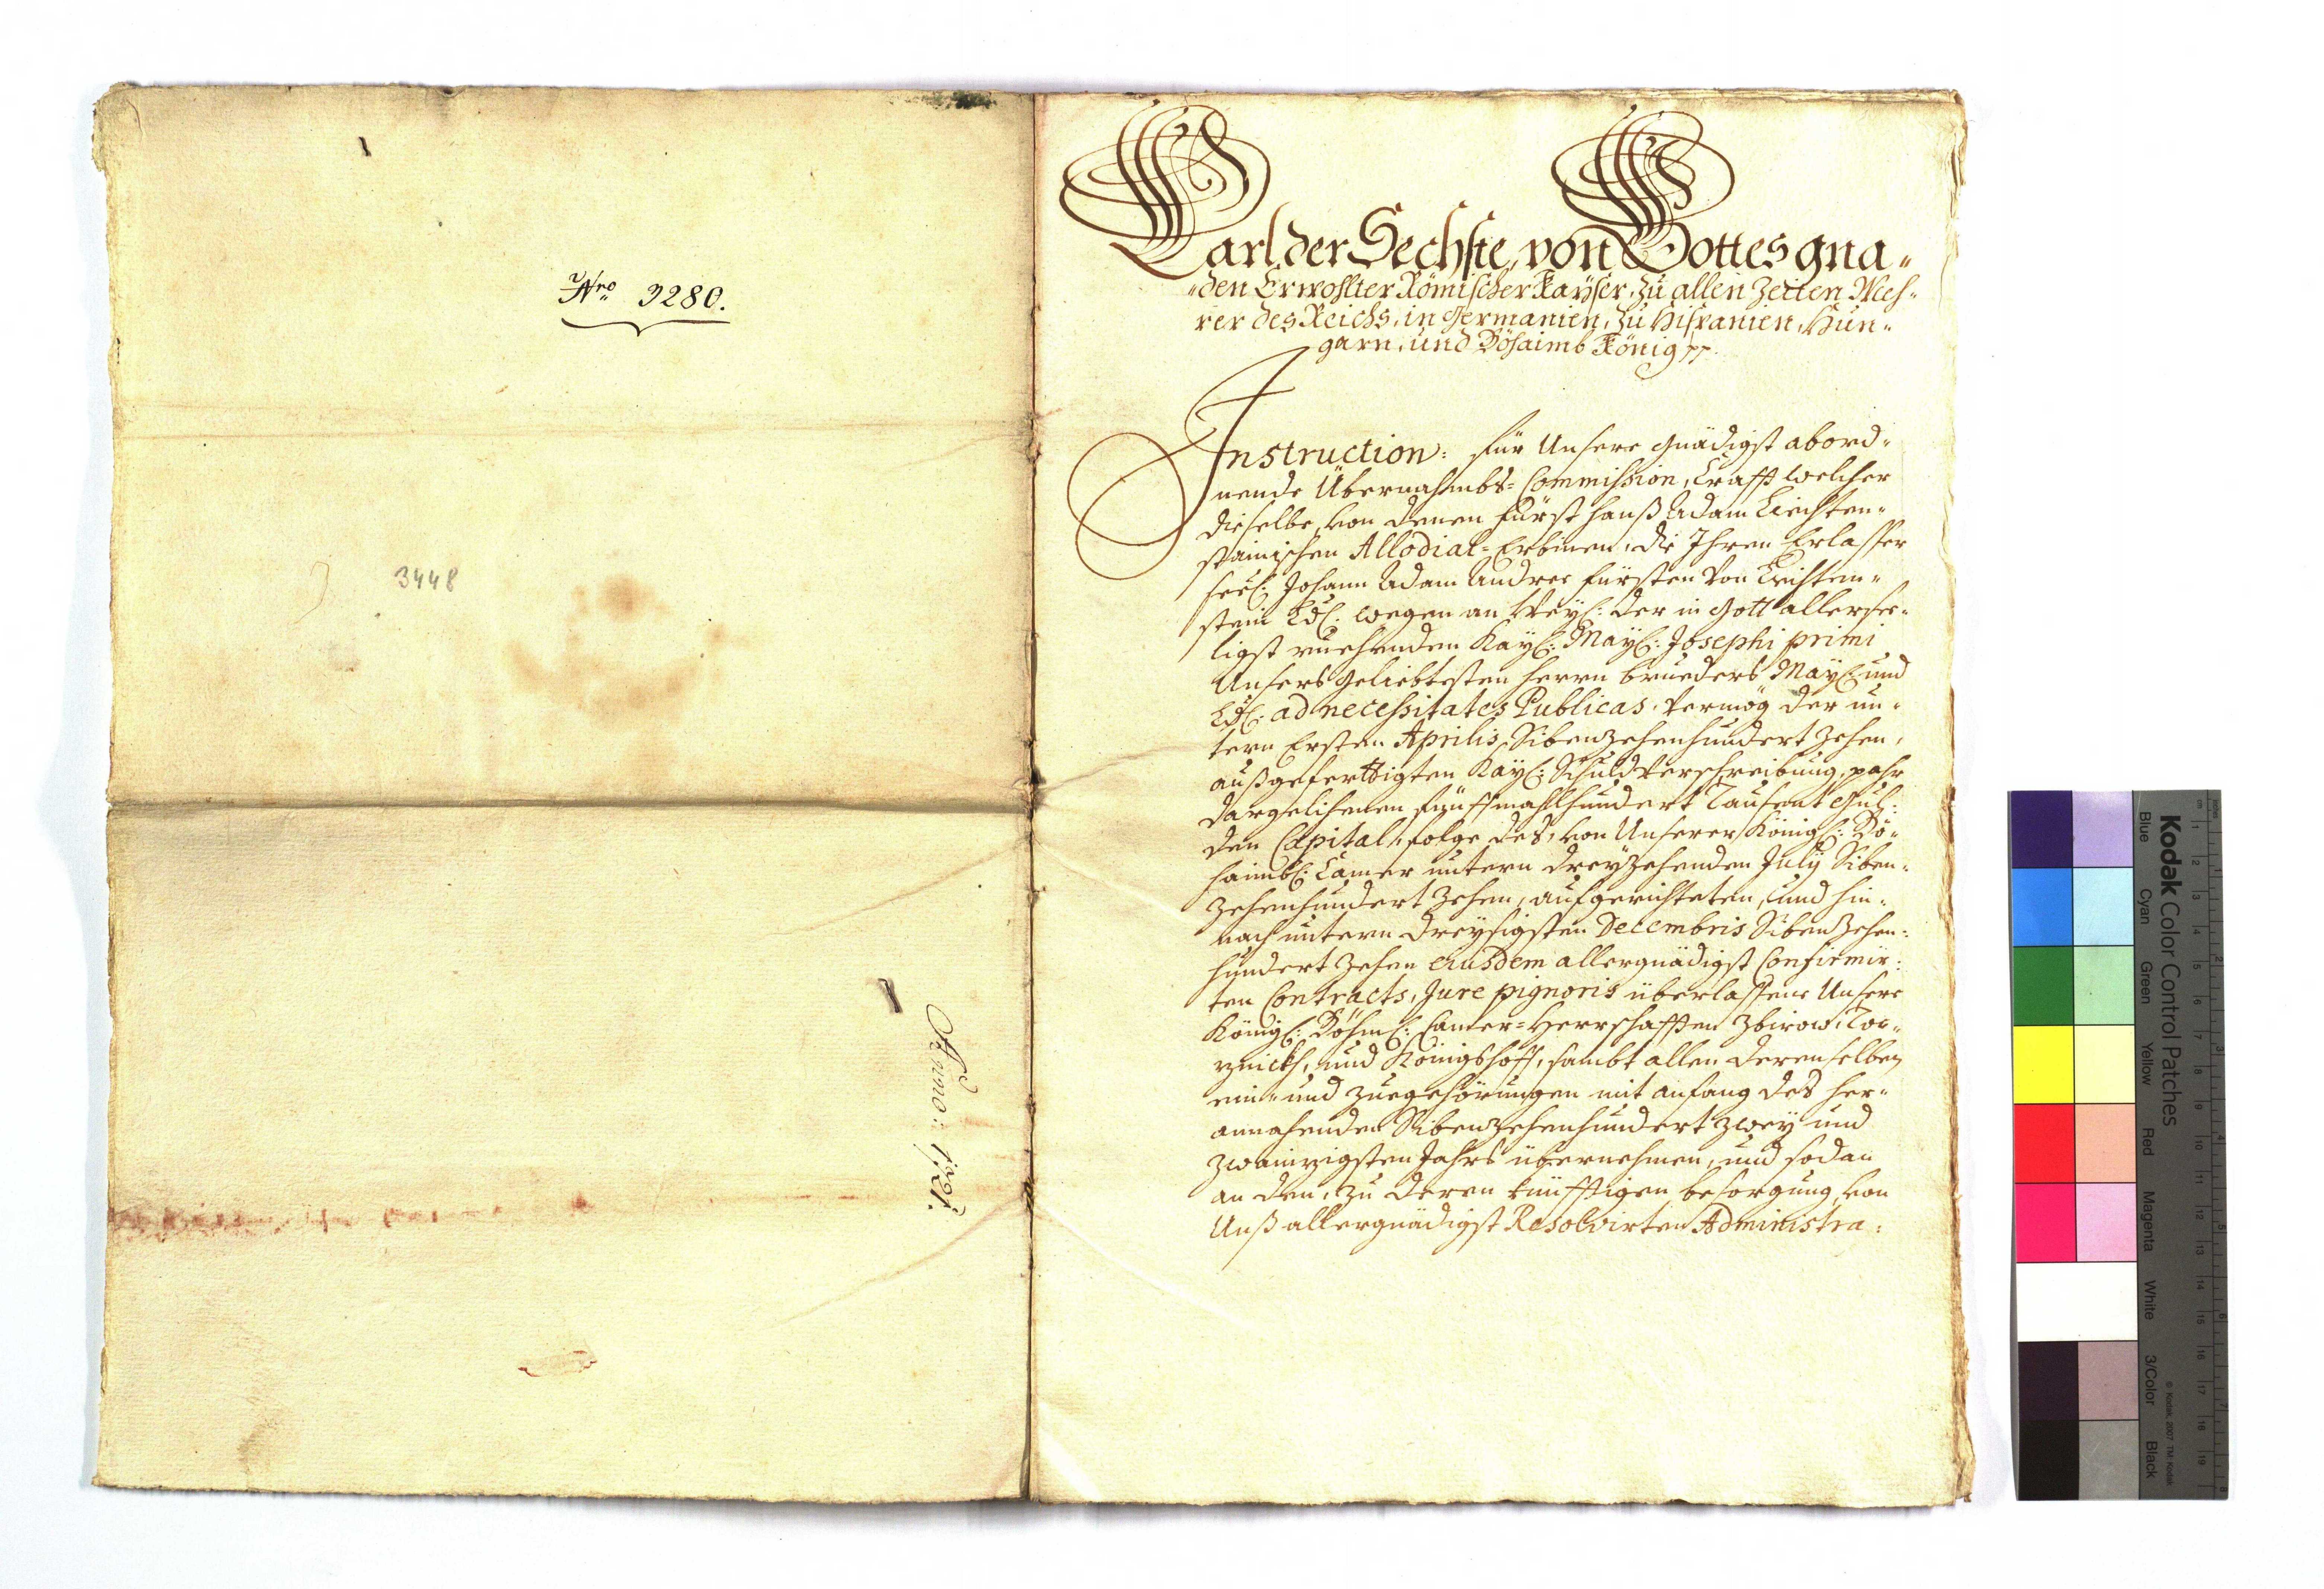 Nro 3280.
3448
Anno: 1721.
Carl der Sechste, von Gottes gna„
„den Erwöhlter Römischer Kayser, zu allen Zeiten Meh„
rer des Reichs, in Germanien, zu Hispanien, Hun„
garn, und Böhaimb König
Instruction: für Unsere gnädigst abord„
nende Übernahmbs=Commission, Crafft welcher
dieselbe, von denen Fürst Hanß Adam Liechten„
stainischen Allodial=Erbinen, die Ihren Erlasser
seel: Johann Adam Andree Fürsten von Liechten„
stein Ld: wegen an Weyl: der in Gott allersee„
ligst ruehenden Kayl: Mayl: Josephi primi
Unsers geliebtesten Herrn bruders Mayl: und
Ld: ad necessitates Publicas, vermög der un„
tern Ersten Aprilis, Sibenzehenhundert zehen,
außgeferttigten Kayl: Schuldverschreibung, pahr
dargelihenen fünffmahlhundert Tausent Gul:
den Capital, folge des, von Unserer Königl: Bö„
haimbl: Camer untern dreyzehenden July Siben„
zehenhundert zehen, aufgerichteten, und hin„
nach untern dreysigsten Decembris Sibenzehen:
hundert zehen eiusdem allergnädigst Confirmir:
ten Contracts, Jure pignoris überlassene Unsere
Königl: Böhml: Camer=Herrschafften Zbirow, Toc„
znickh, und Königshoff, sambt allen derenselben
ein= und zuegehörungen mit anfang des her„
annahenden Sibenzehenhundert zwey und
zwainzigsten Jahrs übernehmen, und sodan
an den, zu deren künfftigen besorgung, von
Unß allergnädigst Resolvirten Administra:
Kodak Color Control Patches
© Kodak, 2007 TM: Kodak
Blue
Cyan
Green
Yellow
Red
Magenta
White
3/Color
Black